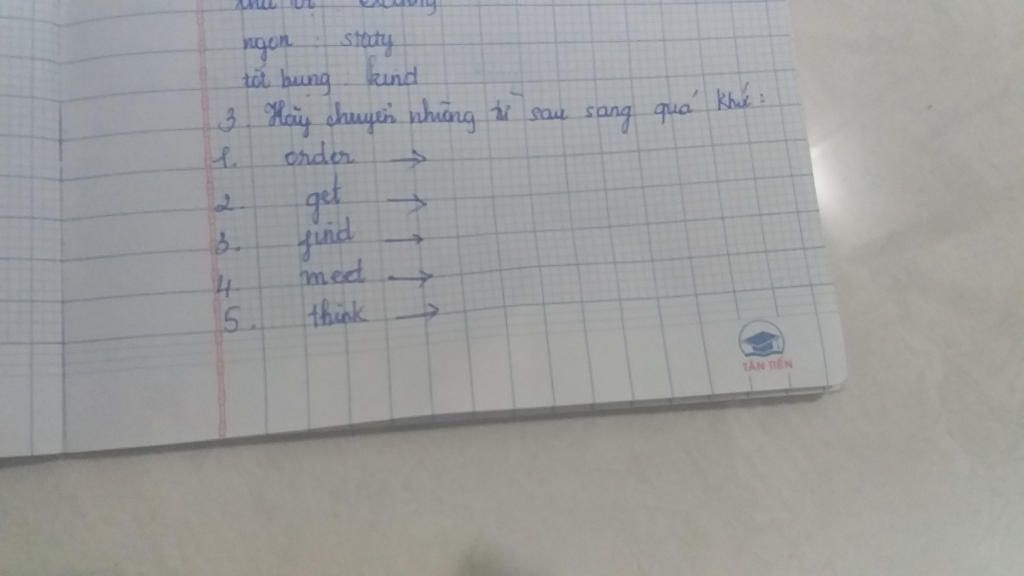 ngon : staty
tốt bụng : kind
3. Hãy chuyển những từ sau sang quá khứ :
1. order →
2. get →
3. find →
4. meet →
5. think →
TÂN TIẾN